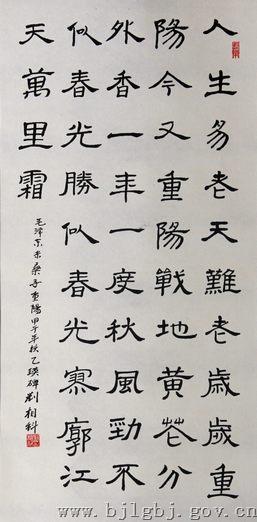 人生易老天難老歲歲重
陽今又重陽戰地黃花分
外香一年一度秋風勁不
似春光勝似春光寥廓江
天萬里霜
毛澤东采桑子重陽甲午年秋乙瑛碑刘相科
www.bjlgbj.gov.cn